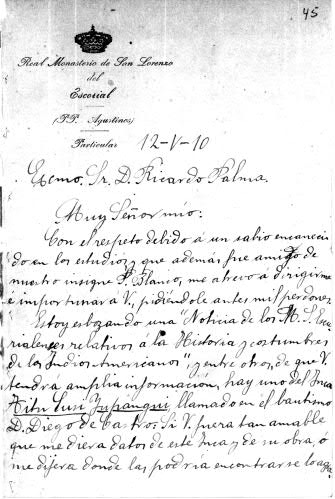 45
Real Monasterio de San Lorenzo
del
Escorial
(P.P. Agustinos)
Particular
12-V-10
Excmo. Sr. D. Ricardo Palma.
Muy Señor mío:
Con el respeto debido á un sabio encaneci
do en los estudios y que además fue amigo de
nuestro insigne P. Blanco, me atrevo á dirigirme
e importunar á V. pidiéndole antes mil perdones
Estoy esbozando una "Noticia de los M.S. Escu
rialenses relativos a la Historia y costumbres
de los Indios Americanos" y entre otros, de que V.
tendrá amplia información, hay uno del Inca
Titu Cusi Yupanqui, llamado en el bautismo
D. Diego de Castro. Si V. fuera tan amable
que me diera datos de este Inca y de su obra, ó
me dijera donde las podría encontrar se lo agra